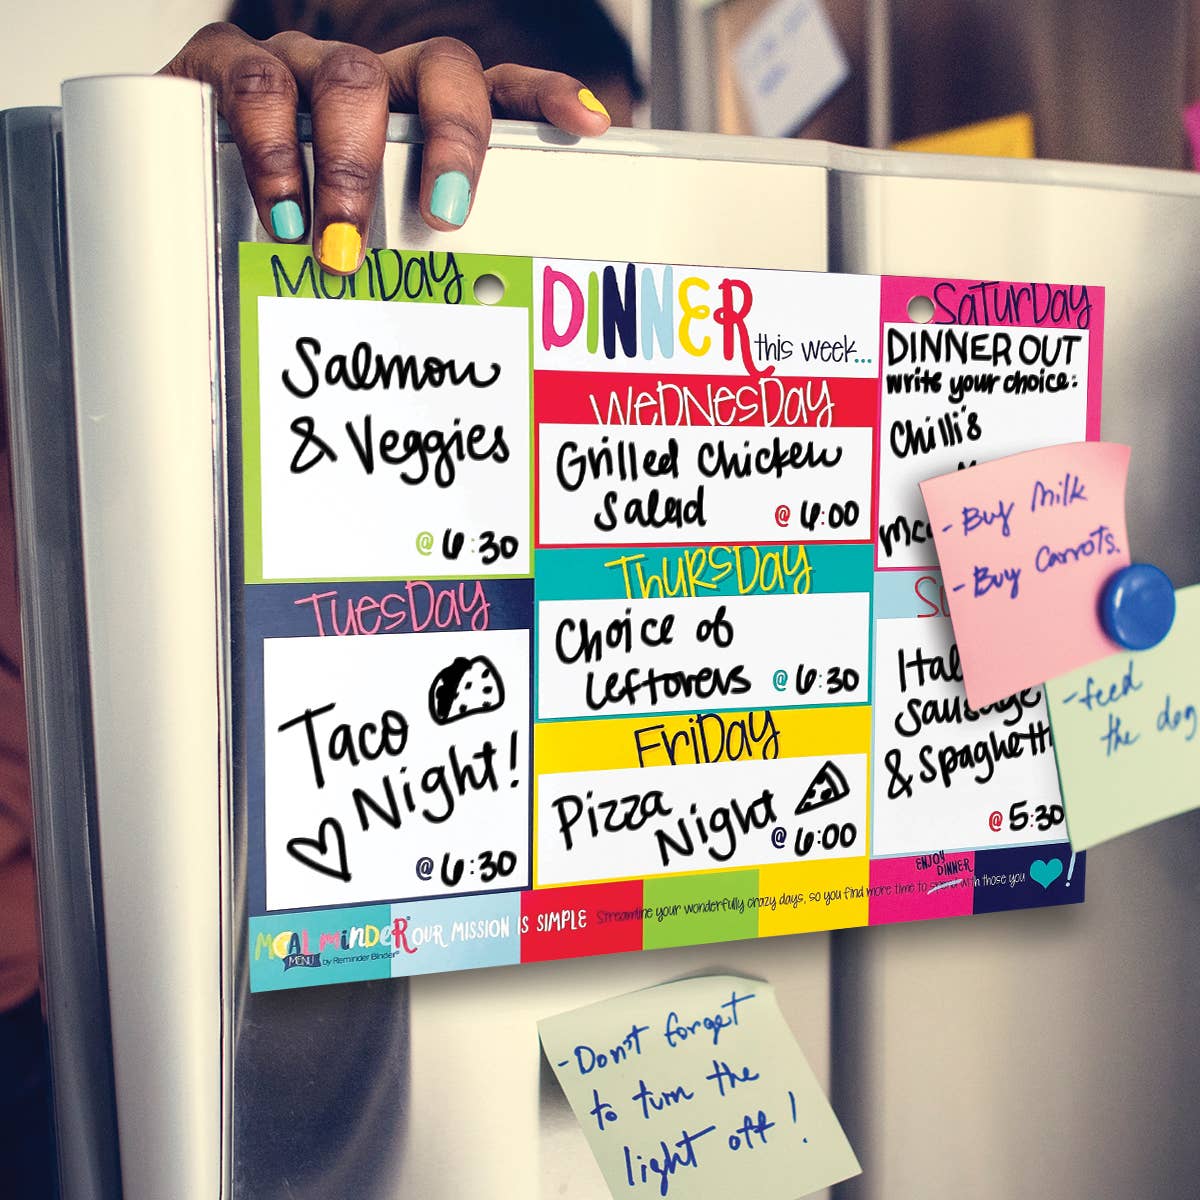 MonDay
Salmon
& Veggies
@ 6:30
TuesDay
Taco
Night!
@ 6:30
DINNER
this week...
WeDNesDay
Grilled Chicken
Salad
@ 6:00
THURSDay
Choice of
Leftovers
@ 6:30
FRiDay
Pizza
Night
@ 6:00
SaTurDay
DINNER OUT
write your choice:
Chilli's
SausAge
& Spaghetti
@ 5:30
- Buy Milk
- Buy Carrots.
- feed
the dog
MEAL minDeR
MENU by Reminder Binder®
OUR MISSION IS SIMPLE
Streamline your wonderfully crazy days, so you find more time to spend with those you !
ENJOY
DINNER
- Don't forget
to turn the
light off!